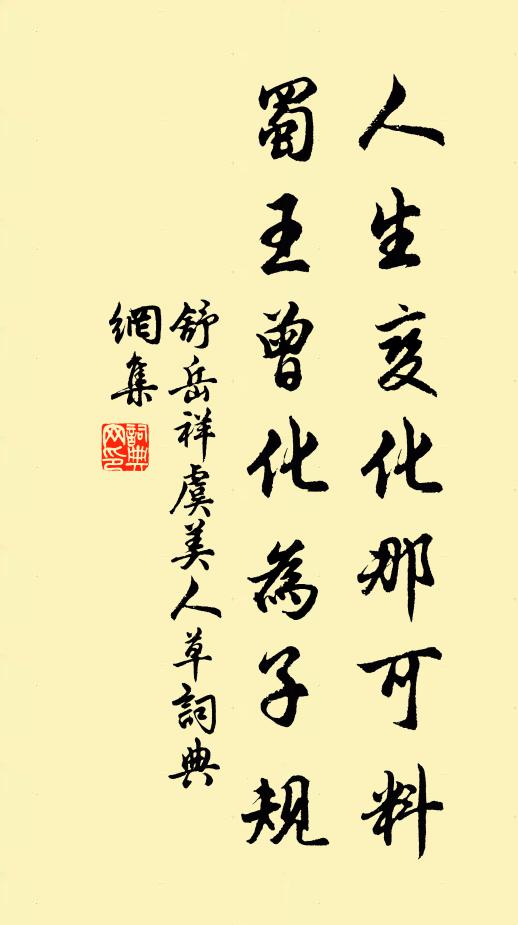 人生变化那可料
蜀王曾化為子規
舒岳祥虞美人草詞典
網集
詞典
网印